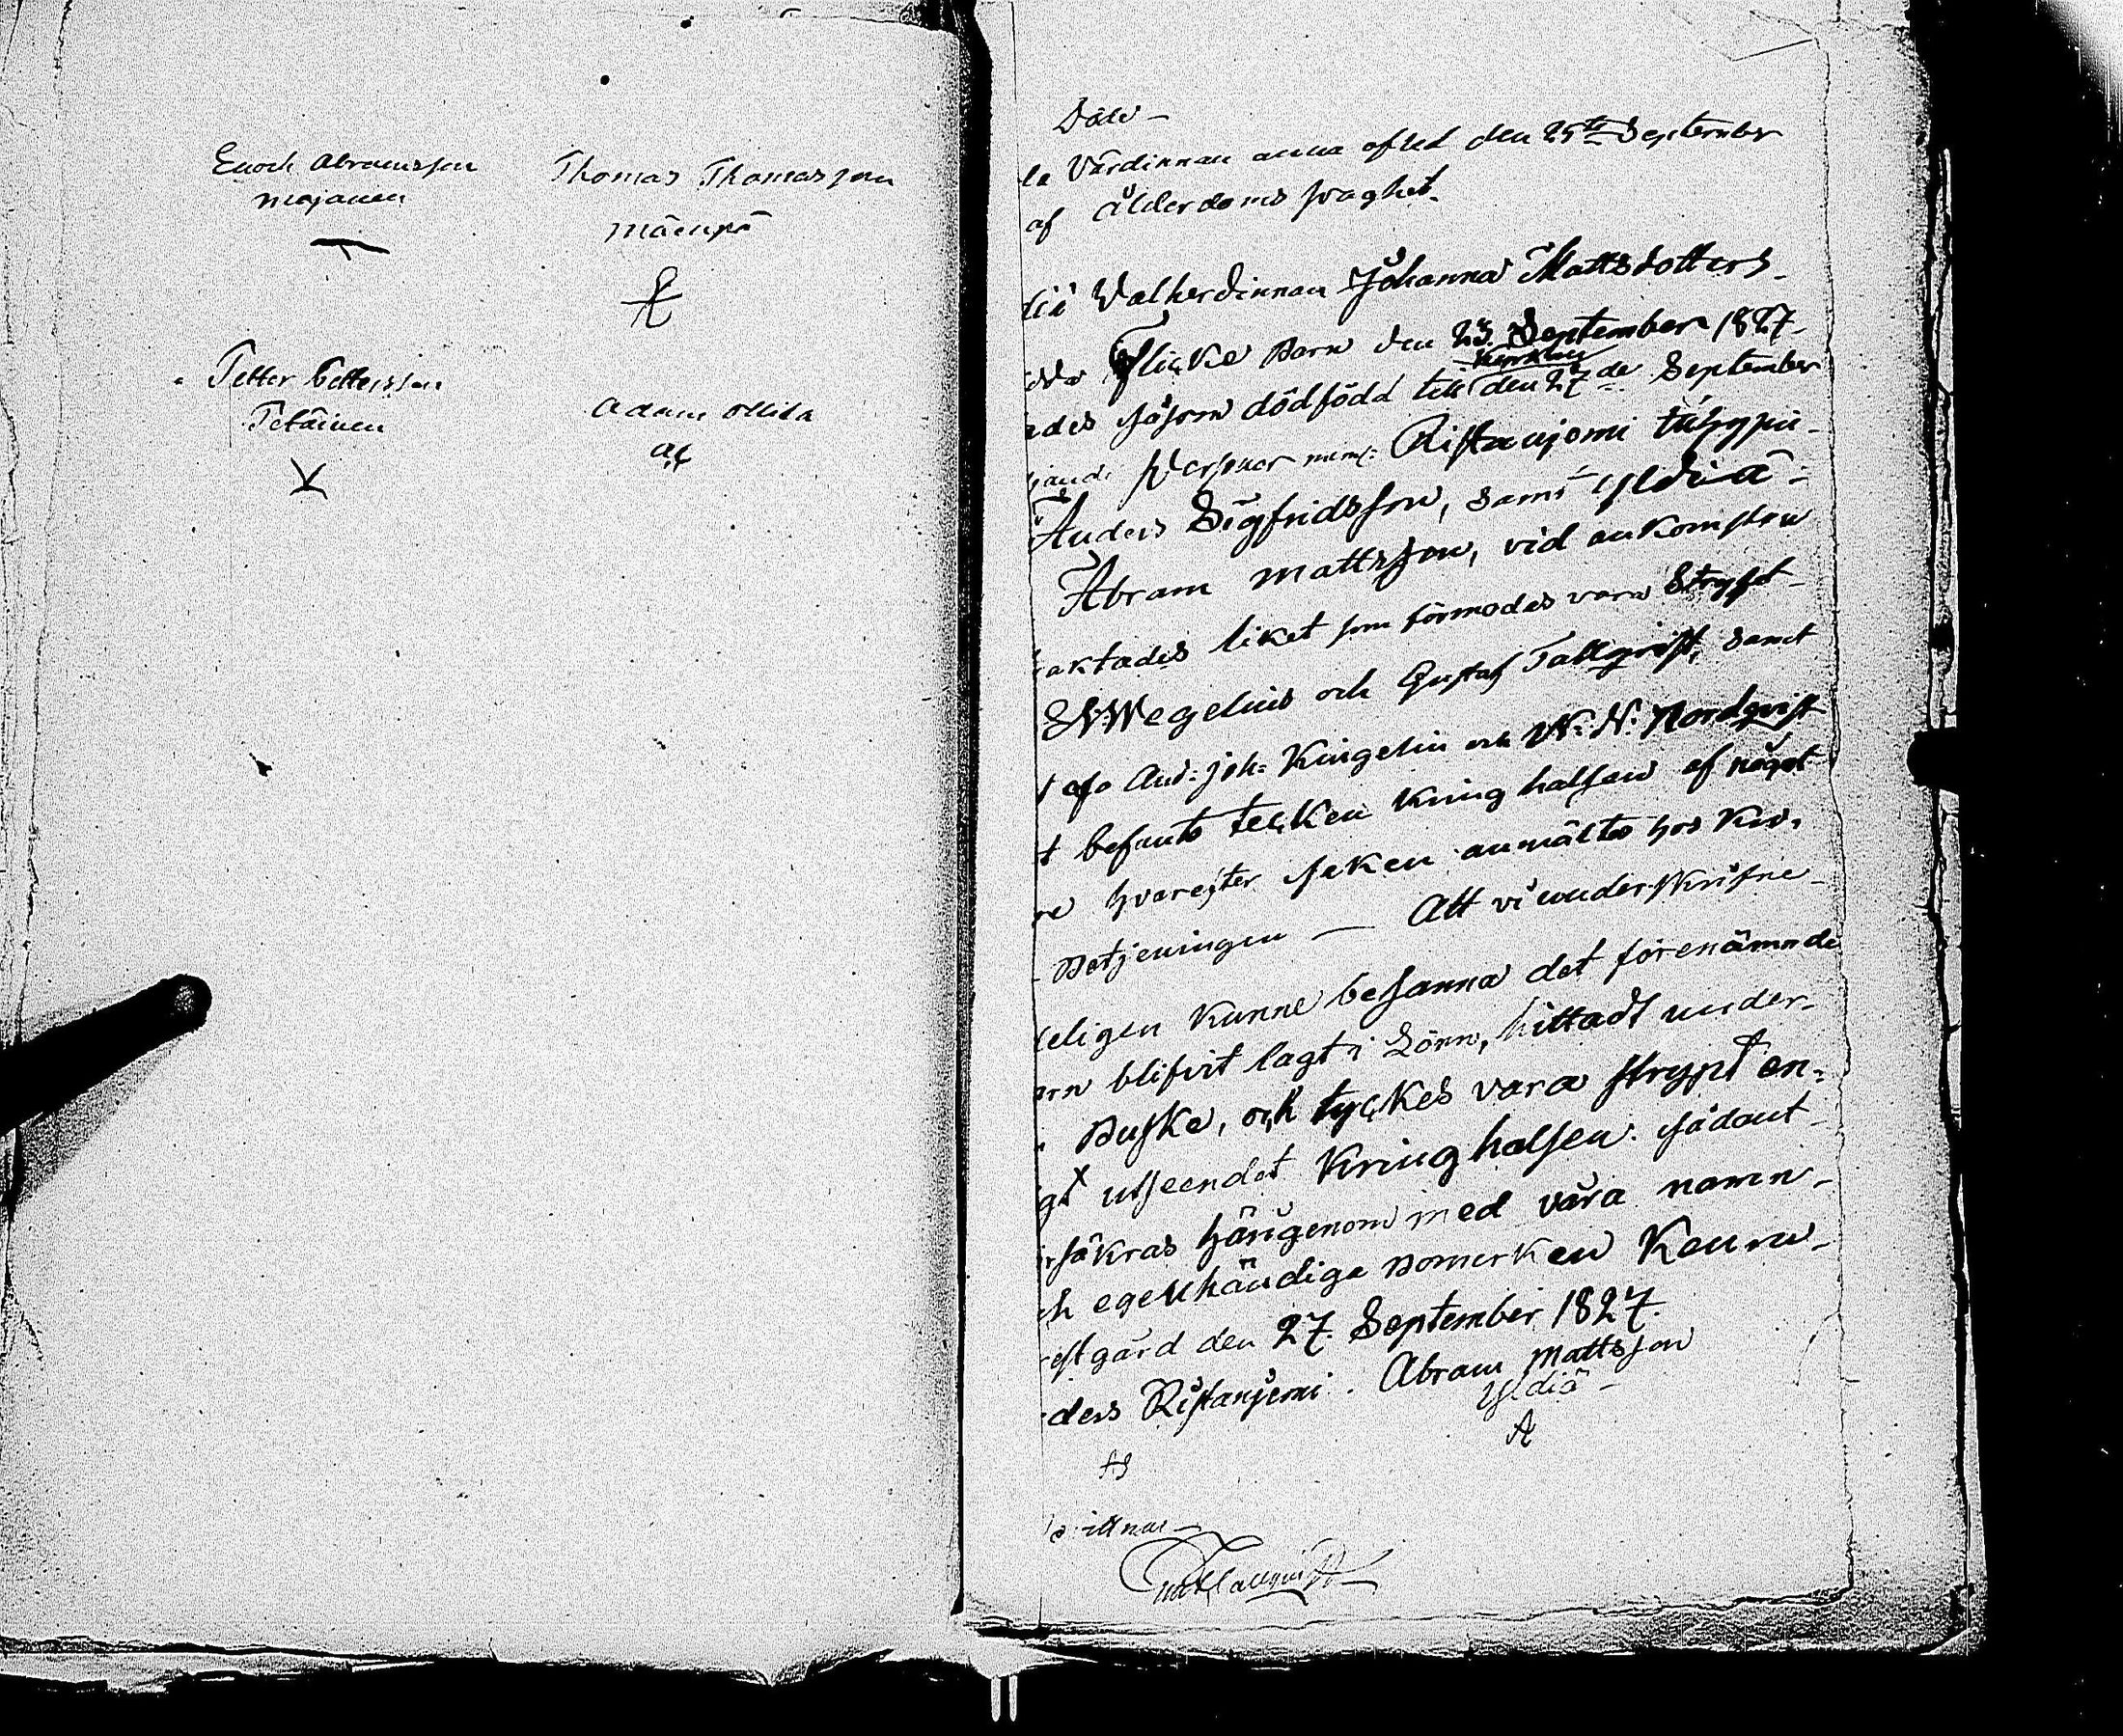 Enoch Abramsson
Majanen
Thomas Thomasson
Mäenpä
Petter Pettersson
Petäinen
Adam Ollila
Död
la Värdinnan Anna afled den 25te September
af ålderdoms svaghet.
diä Valherdinnan Johanna Mattsdotters
Flicke Barn den 23. September 1827
ades såsom dödfödd till kyrkan den 27de September
Personer neml: Ristaujomi
Anders Sigfridsson, samt Yldiä
Abram Mattsson, vid ankomsten
aktades liket som förmodes vara Strypt
Wegelius och Gustaf Tallqvist, samt
t efo And: Joh: Kingelin och N: N: Nordqvist
t befants tecken kring halsen af något
re hvarefter saken anmältes hos
Betjeningen — Att vi underskrifne
eligen kunne besanna det förenämnde
arn blifvit lagt i Lönn, hittadt under
Buske, och tyckes vara strypt en-
gt utseendet kring halsen. sådant
rsäkras härigenom med våra namn
ch egenhändiga bomerken Keuru
estgård den 27. September 1827.
ders Ristanjemi. Abram Mattsson
Yldiä
A
Vittnar